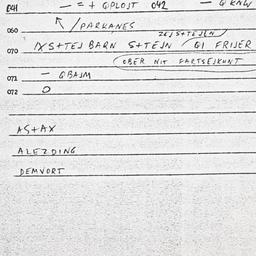 041 — = + QPLOJT 042 —
060 /PARKANES
ZEJS+TEJLN
070 IXS+TEJ BARN S+TEJN / GI FRIJER
OBER NIT FARTSEJKUNT
071 — QBAJM
072 O
AS+AX
ALEZDING
DEMVORT